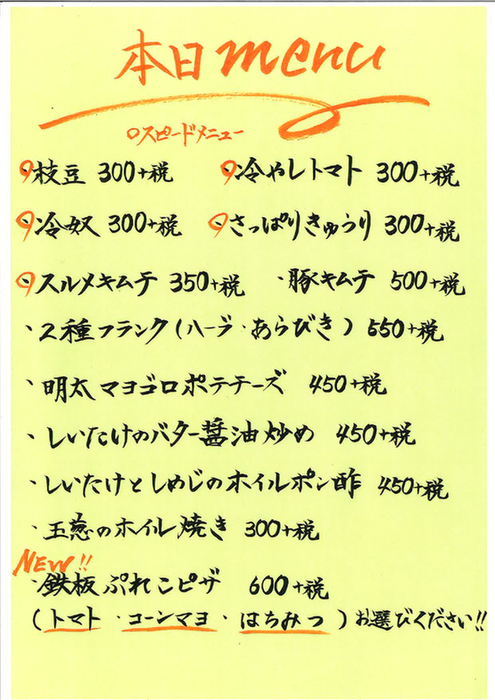 本日menu
○スピードメニュー
枝豆 300+税 冷やしトマト 300+税
冷奴 300+税 さっぱりきゅうり 300+税
スルメキムチ 350+税 ・豚キムチ 500+税
・2種フランク(ハーブ・あらびき) 550+税
・明太マヨゴロポテチーズ 450+税
・しいたけのバター醤油炒め 450+税
・しいたけとしめじのホイルポン酢 450+税
・玉葱のホイル焼き 300+税
NEW!!
・鉄板ぷれこピザ 600+税
(トマト・コーンマヨ・はちみつ)お選びください!!